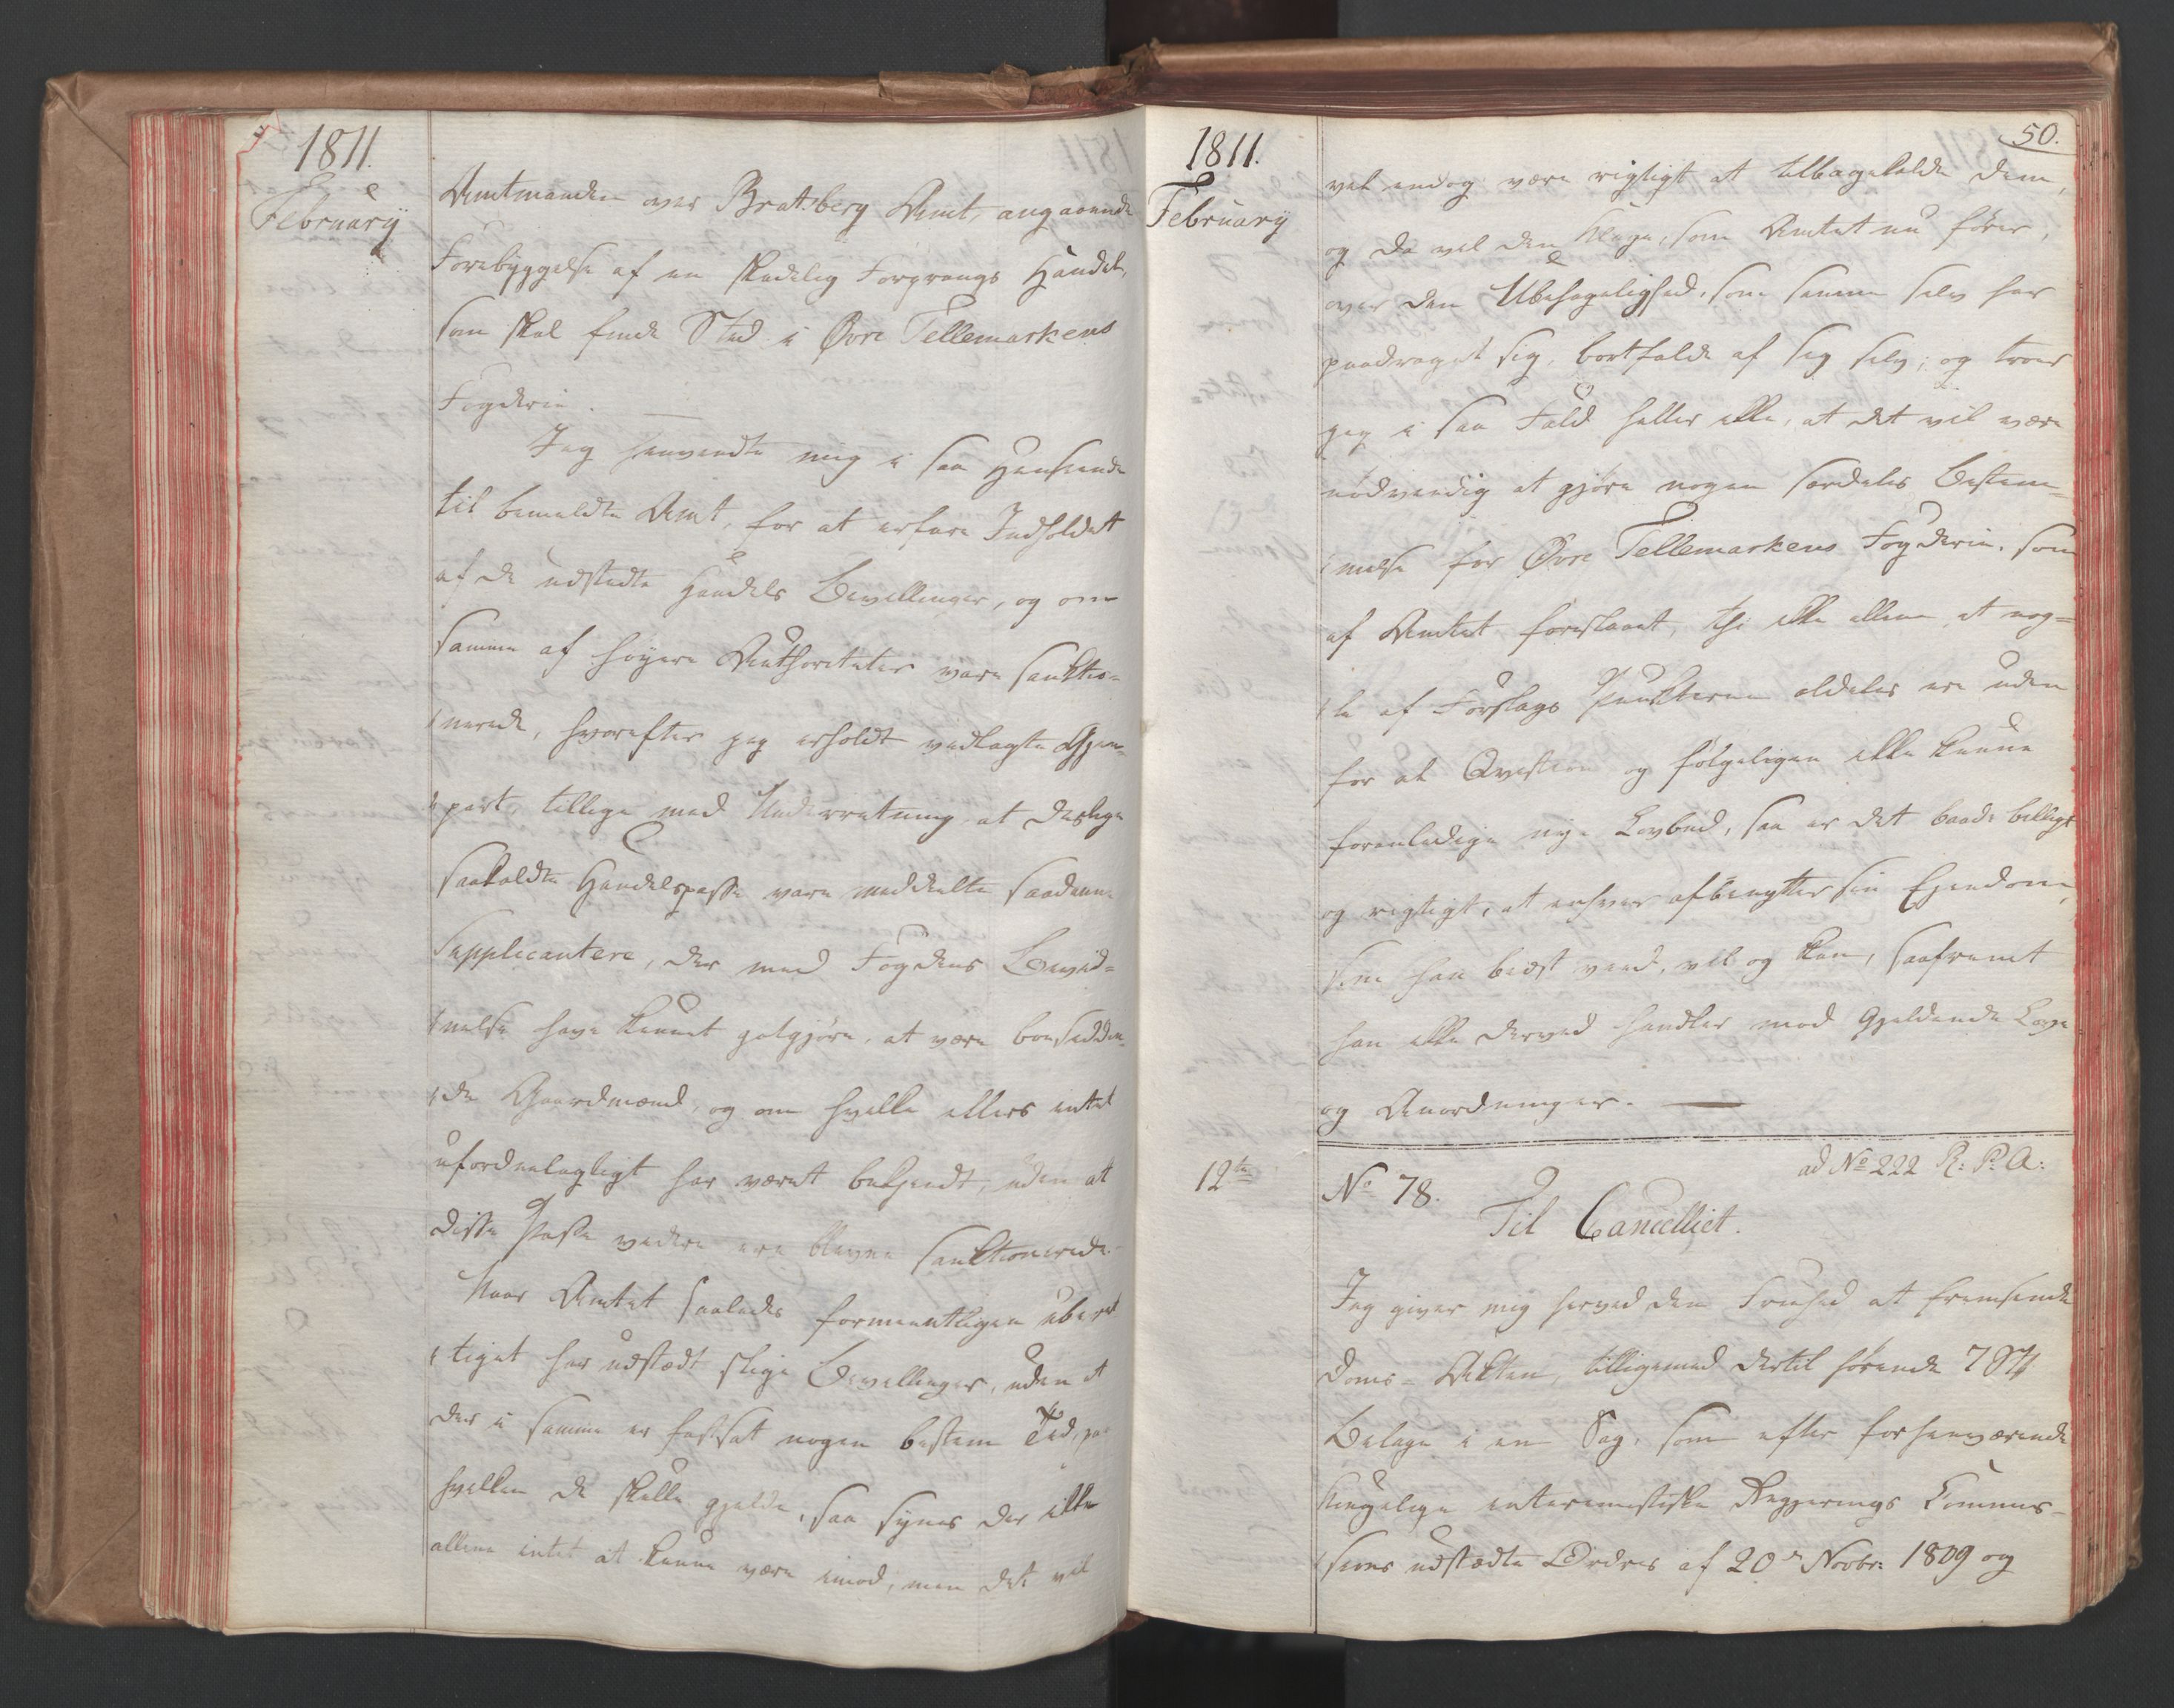 1811.
February
Amtmanden over Bratsberg Amt, angaaende
Forebyggelse af en skadelig Forprangs Handel,
som skal finde Sted i Øvre Tellemarkens
Fogderie.
Jeg henvendte mig i saa Henseende
til bemeldte Amt, for at erfare Indholdet
af de udstedte Handels Bevillinger, og om
samme af høyere Authoriteter vare sanktio=
nerede, hvorefter jeg erholdt vedlagte Gjen=
part, tillige med Underretning at deslige
saakaldte Handelspasse vare meddeelte saadanne
Supplicantere, der med Fogdens Bevid=
nelse have kunnet godtgjøre, at være boesidden=
de Gaardmænd, og om hvilke ellers intet
ufordeelagtigt har været bekjendt, uden at
disse Passe videre ere blevne sanktionerede.
Naar Amtet saaledes formeentligen uberet
tiget har udstædt slige Bevillinger, uden at
der i samme er fastsat nogen bestemt Tid, paa
hvilken de skulle gjelde, saa synes der ikke
allene intet at kunne være imod, men det vil
1811.
February
50.
vel endog være rigtigt at tilbagekalde dem,
og da vil den Klage, som Amtet nu fører,
over den Ubehagelighed, som samme selv har
paadraget sig, bortfalde af sig selv; og troer
jeg i saa Fald heller ikke, at det vil være
nødvendig at gjøre nogen særdeles Bestem=
melse for Øvre Tellemarkens Fogderie, som
af Amtet foreslaaet, thi ikke allene at nog=
le af Forslags Punkterne aldeles ere uden
for al Qvestion og følgeligen ikke kunne
foranledige nye Lovbud, saa er det baade billigt
og rigtigt, at enhver afbenytter sin Ejendom,
som han bedst veed, vil og kan, saafremt
han ikke derved handler mod gjeldende Love
og Anordninger.
12te
No 78.
ad No 222 R: P: A:
Til Cancelliet.
Jeg giver mig herved den Friehed at fremsende
Doms-Akten, tilligemed dertil hørende 7 St
Bilage i en Sag, som efter forhenværende
kongelige interimistiske Regjerings Commis=
sions udstædte Ordres af 20de Novbr: 1809 og